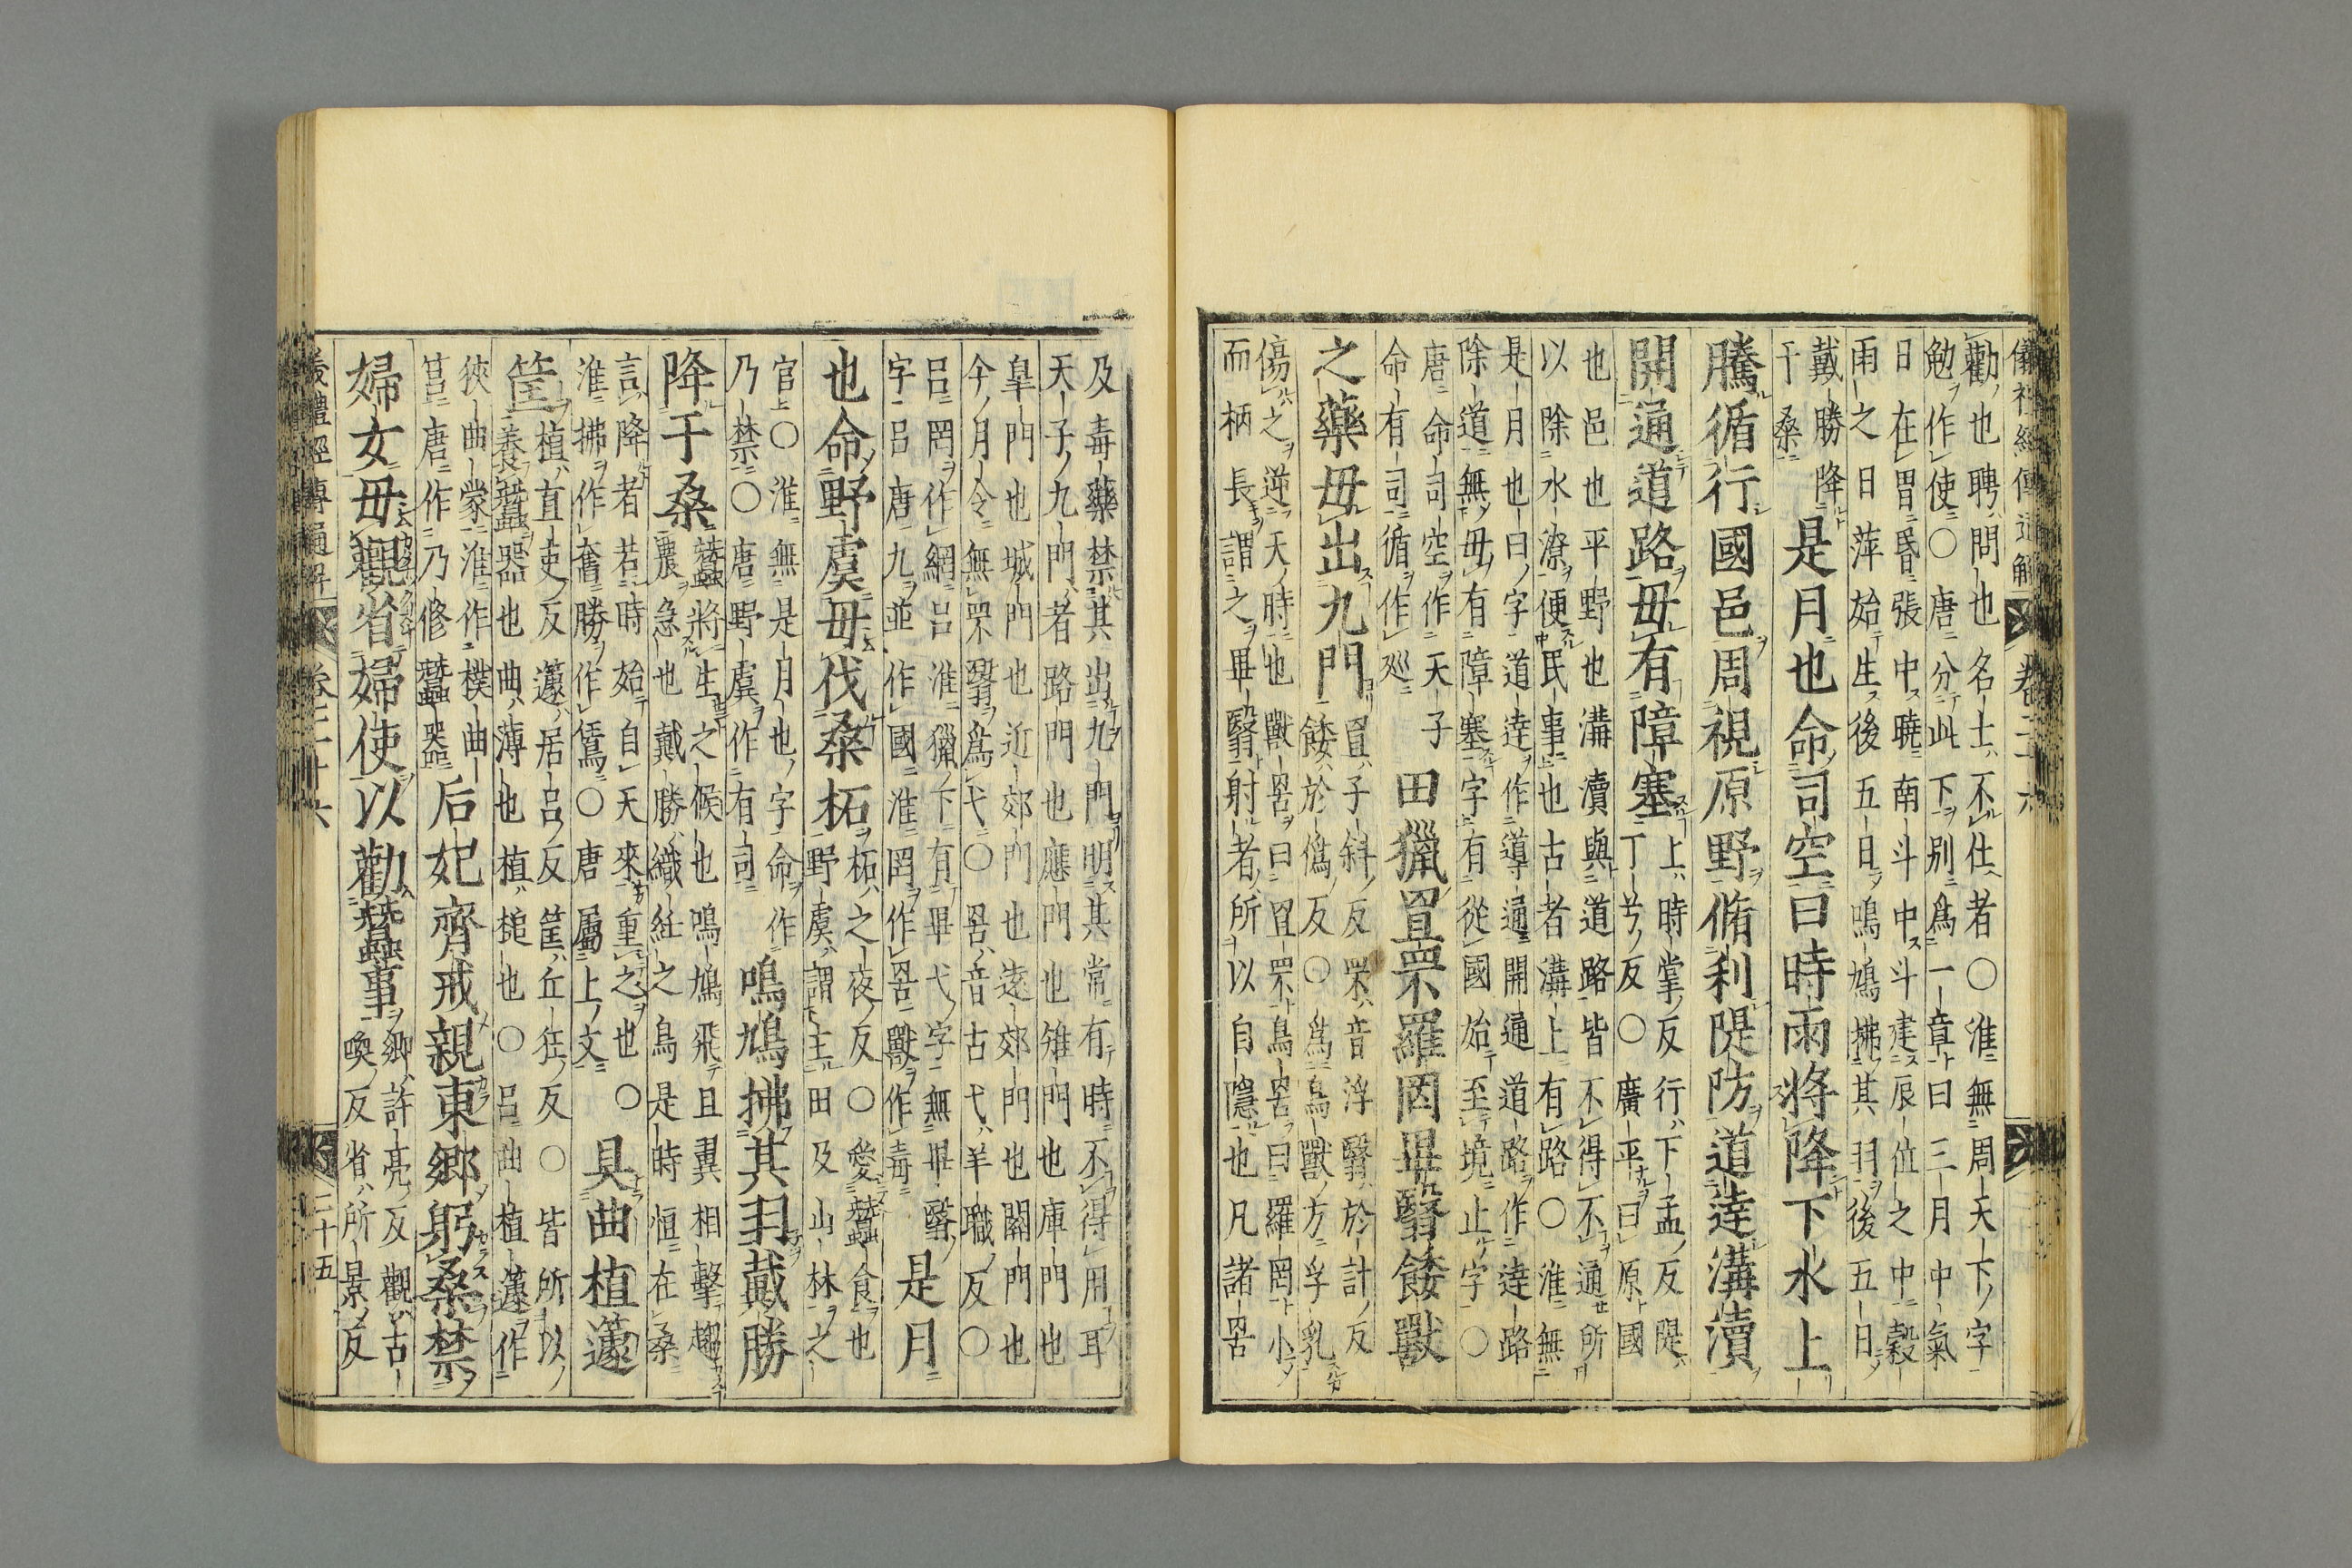 儀禮經傳通解 卷二十六
勸也聘問也名士不仕者〇淮無周天下字
勉作使〇唐分此下別爲一章曰三月中氣
日在胃昏張中曉南斗中斗建辰位之中穀
雨之日萍始生後五日鳴鳩拂其羽後五日
戴勝降
于桑
是月也命司空曰時雨將降下水上
騰循行國邑周視原野脩利隄防道達溝瀆
開通道路毋有障塞
上時掌反行下孟反隄
丁兮反〇廣平曰原國
也邑也平野也溝瀆與道路皆不得不通所
以除水潦便民事也古者溝上有路〇淮無
是月也曰字道達作導通開通道路作達路
除道無毋有障塞字有從國始至境止字〇
唐命司空作天子
命有司循作廵
田獵罝罘羅罔畢翳餧獸
之藥毋出九門
罝子斜反罘音浮翳於計反
餧於僞反〇爲鳥獸方孚乳
傷之逆天時也獸罟曰罝罘鳥罟曰羅罔小
而柄長謂之畢翳射者所以自隱也凡諸罟
及毒藥禁其出九門明其常有時不得用耳
天子九門者路門也應門也雉門也庫門也
皐門也城門也近郊門也遠郊門也關門也
今月令無罘翳爲弋〇罟音古弋羊職反〇
呂罔作網呂淮獵下有畢弋字無畢翳
字呂唐九並作國淮罔作罟獸作毒
是月
也命野虞毋伐桑柘
柘之夜反〇愛蠶食也
野虞謂主田及山林之
官〇淮無是月也字命作
乃禁〇唐野虞作有司
鳴鳩拂其羽戴勝
降于桑
蠶將生之候也鳴鳩飛且翼相擊趨
農急也戴勝織紝之鳥是時恒在桑
言降者若時始自天來重之也〇
淮拂作奮勝作鵀〇唐屬上文
具曲植籧
筐
植直吏反籧居呂反筐丘狂反〇皆所以
養蠶器也曲薄也植槌也〇呂曲植籧作
挾曲蒙淮作樸曲
筥唐作乃修蠶器
后妃齊戒親東鄉躬桑禁
婦女毋觀省婦使以勸蠶事
鄉許亮反觀古
喚反省所景反
儀禮經傳通解 卷二十六 二十五